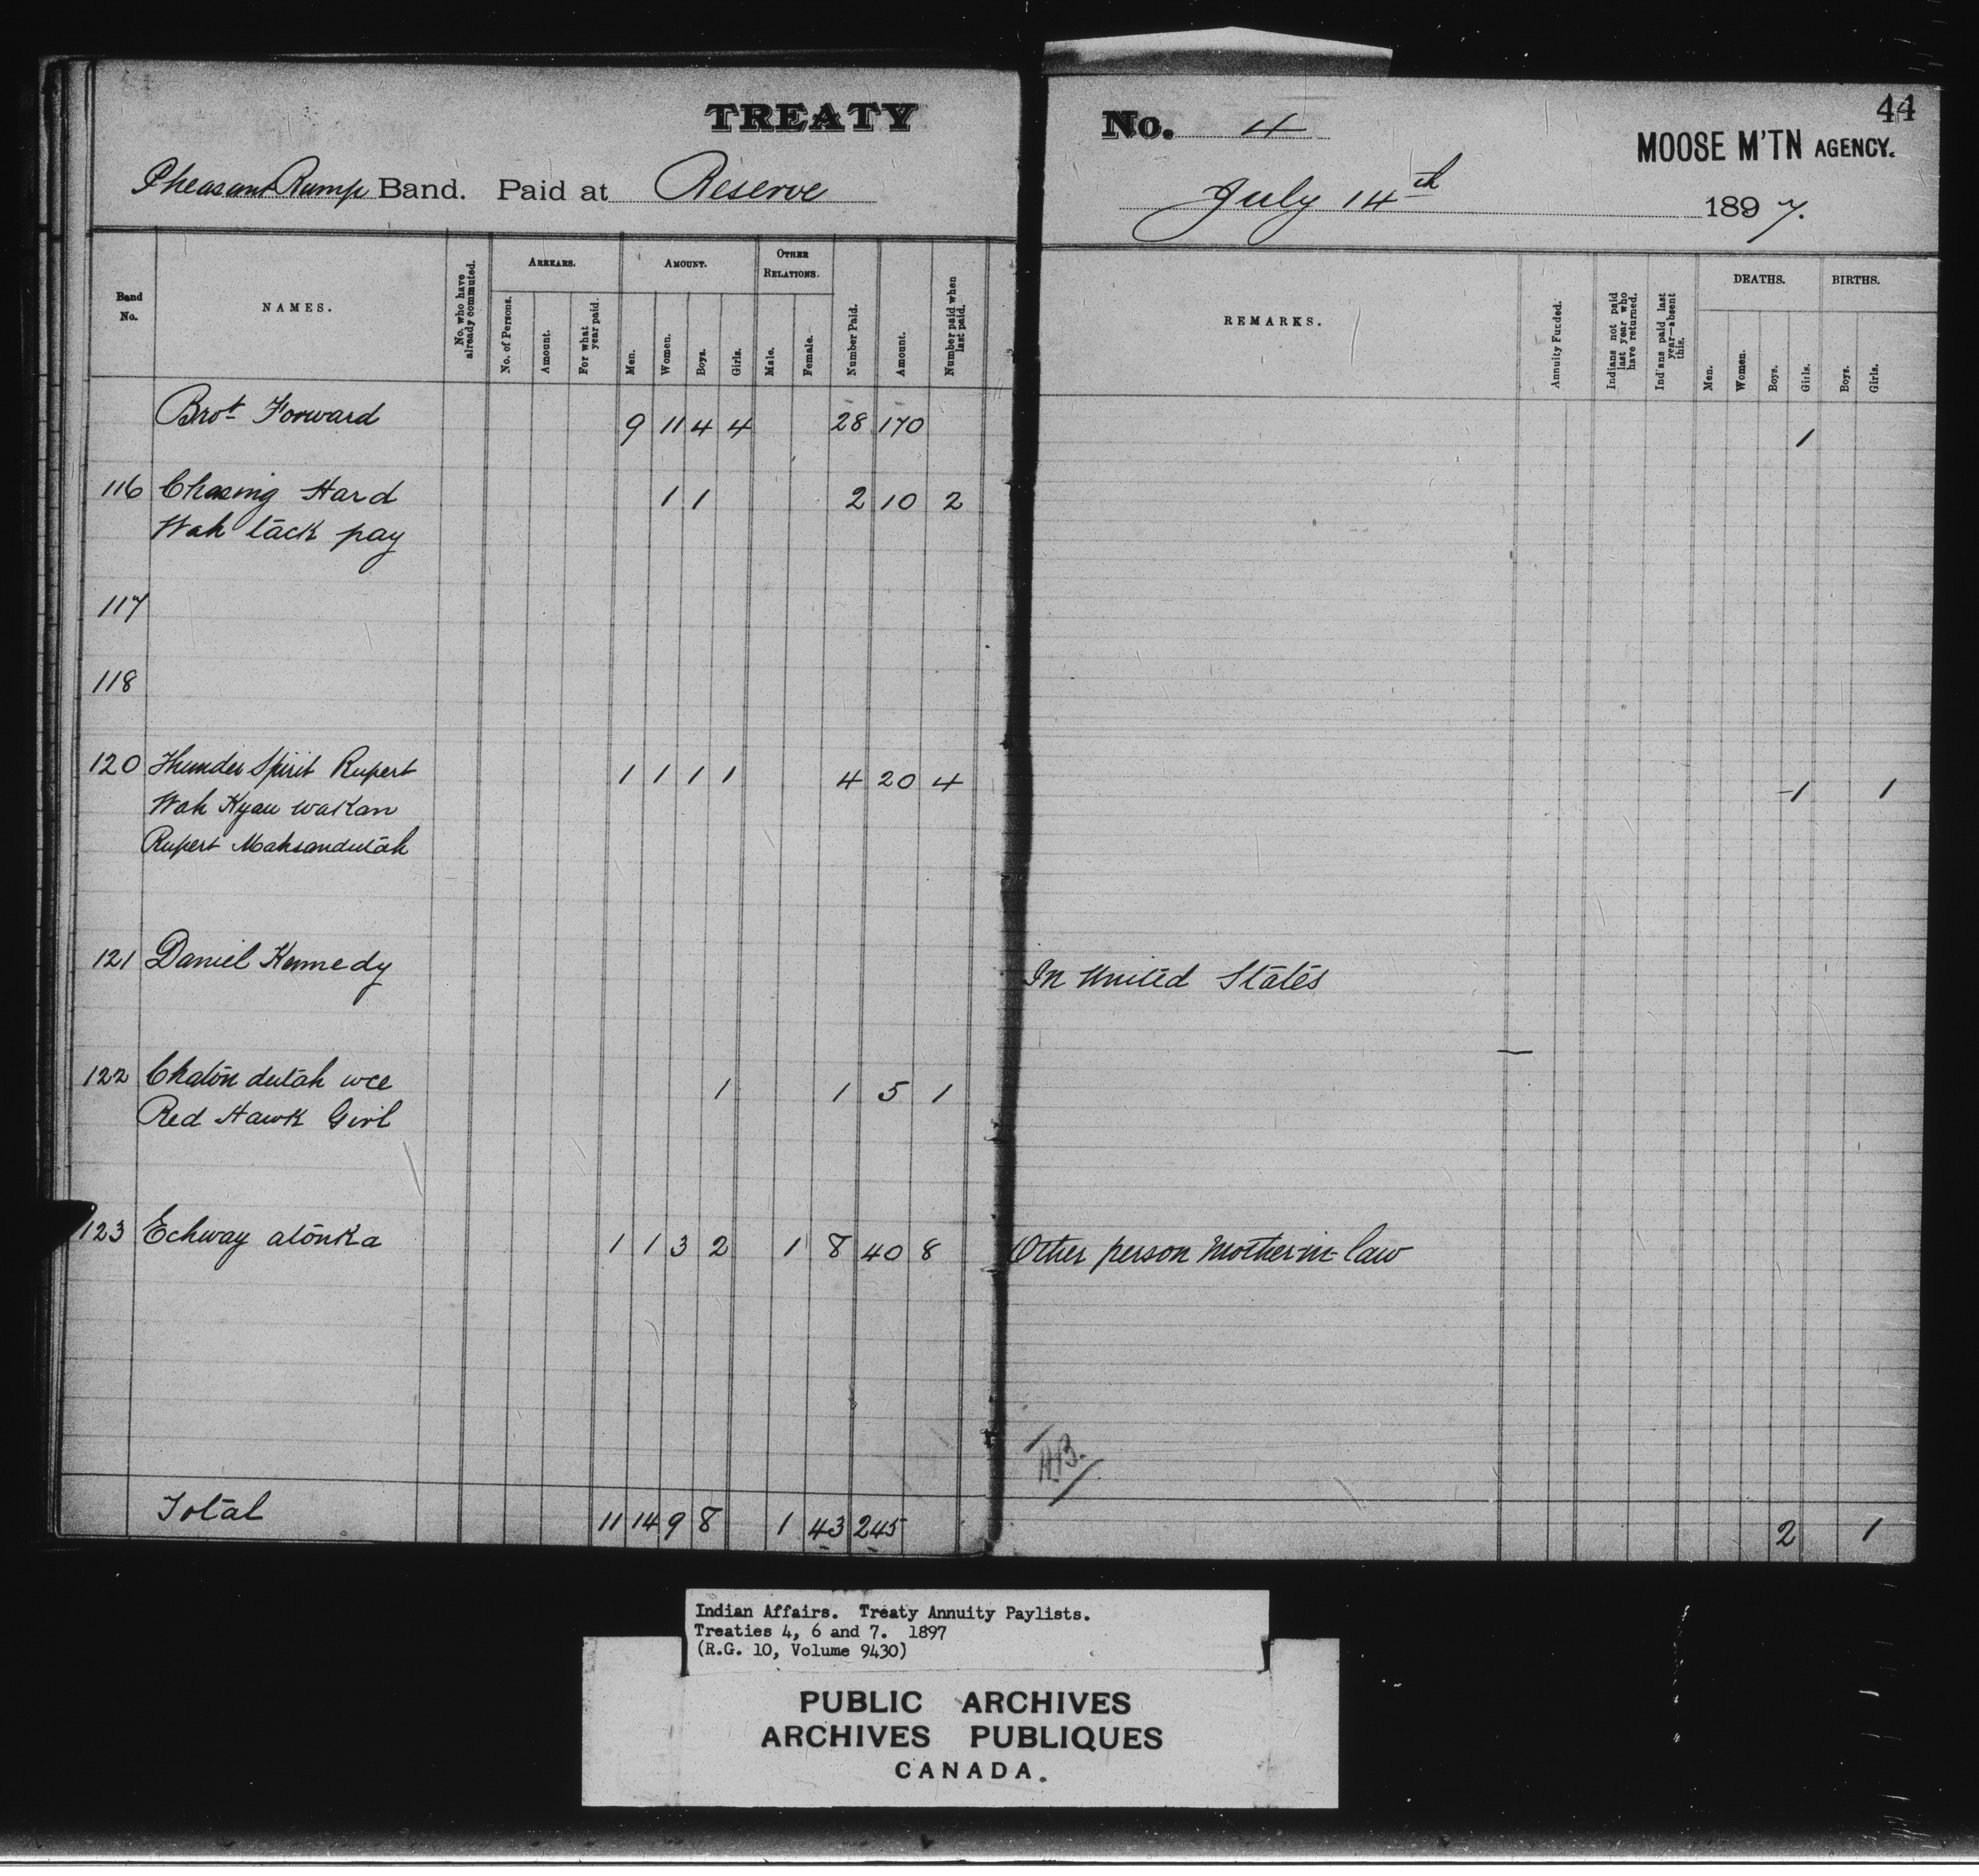 TREATY No. 4 44
MOOSE M'TN AGENCY.
Pheasant Rump Band. Paid at Reserve July 14th 1897.
Band No.
NAMES.
No. who have already commuted.
ARREARS.
No. of Persons.
Amount.
For what year paid.
AMOUNT.
Men.
Women.
Boys.
Girls.
OTHER RELATIONS.
Male.
Female.
Number Paid.
Amount.
Number paid when last paid.
REMARKS.
Annuity Funded.
Indians not paid last year who have returned.
Indians paid last year—absent this.
DEATHS.
Men.
Women.
Boys.
Girls.
BIRTHS.
Boys.
Girls.
Brot Forward 9 11 4 4 28 170 1
116 Chasing Hard 1 1 2 10 2
Wah tack pay
117
118
120 Thunder Spirit Rupert 1 1 1 1 4 20 4 1 1
Wah Kyau wakan
Rupert Mahsandutah
121 Daniel Kennedy In United States
122 Chaton dutah wee 1 1 5 1
Red Hawk Girl
123 Echway atonka 1 1 3 2 1 8 40 8 Other person Mother-in-law
Total 11 14 9 8 1 43 245 2 1
Indian Affairs. Treaty Annuity Paylists.
Treaties 4, 6 and 7. 1897
(R.G. 10, Volume 9430)
PUBLIC ARCHIVES
ARCHIVES PUBLIQUES
CANADA.